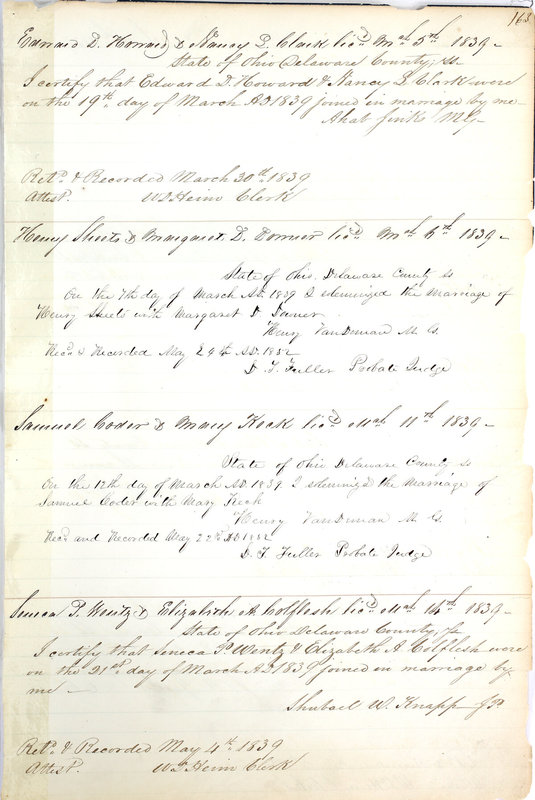 163
Edward D. Howard & Nancy L. Clark lic'd Mah 5th 1839 -
State of Ohio Delaware County, ss.
I certify that Edward D. Howard & Nancy L. Clark were
on the 19th day of March AD 1839 joined in marriage by me -
Ahab Jinks MG -
Retd. & Recorded March 30th. 1839
Attest. W L Heim Clerk
Henry Sheets & Margaret D. lic'd Mah 6th 1839 -
State of Ohio. Delaware County ss
On the 7th day of March A.D. 1839 I solemnized the Marriage of
Henry Sheets with Margaret D
Henry VanDeman M. G.
Rec'd & Recorded May 29th A.D. 1852
D. T. Fuller Probate Judge
Samuel Coder & Mary Keck lic'd Mah 11th 1839 -
State of Ohio Delaware County ss
On the 12th day of March A.D. 1839 I solemnized the Marriage of
Samuel Coder with Mary Keck
Henry VanDeman M. G.
Rec'd and Recorded May 22d AD 1852
D. T. Fuller Probate Judge
Seneca P. Wentz & Elizabeth A Colflesh lic'd Mah 14th 1839 -
State of Ohio Delaware County ss
I certify that Seneca P. Wentz & Elizabeth A. Colflesh were
on the 21st. day of March AD 1839 joined in marriage by
me -
Shubael W. Knapp JP
Retd. & Recorded May 4th. 1839
Attest. W L Heim Clerk